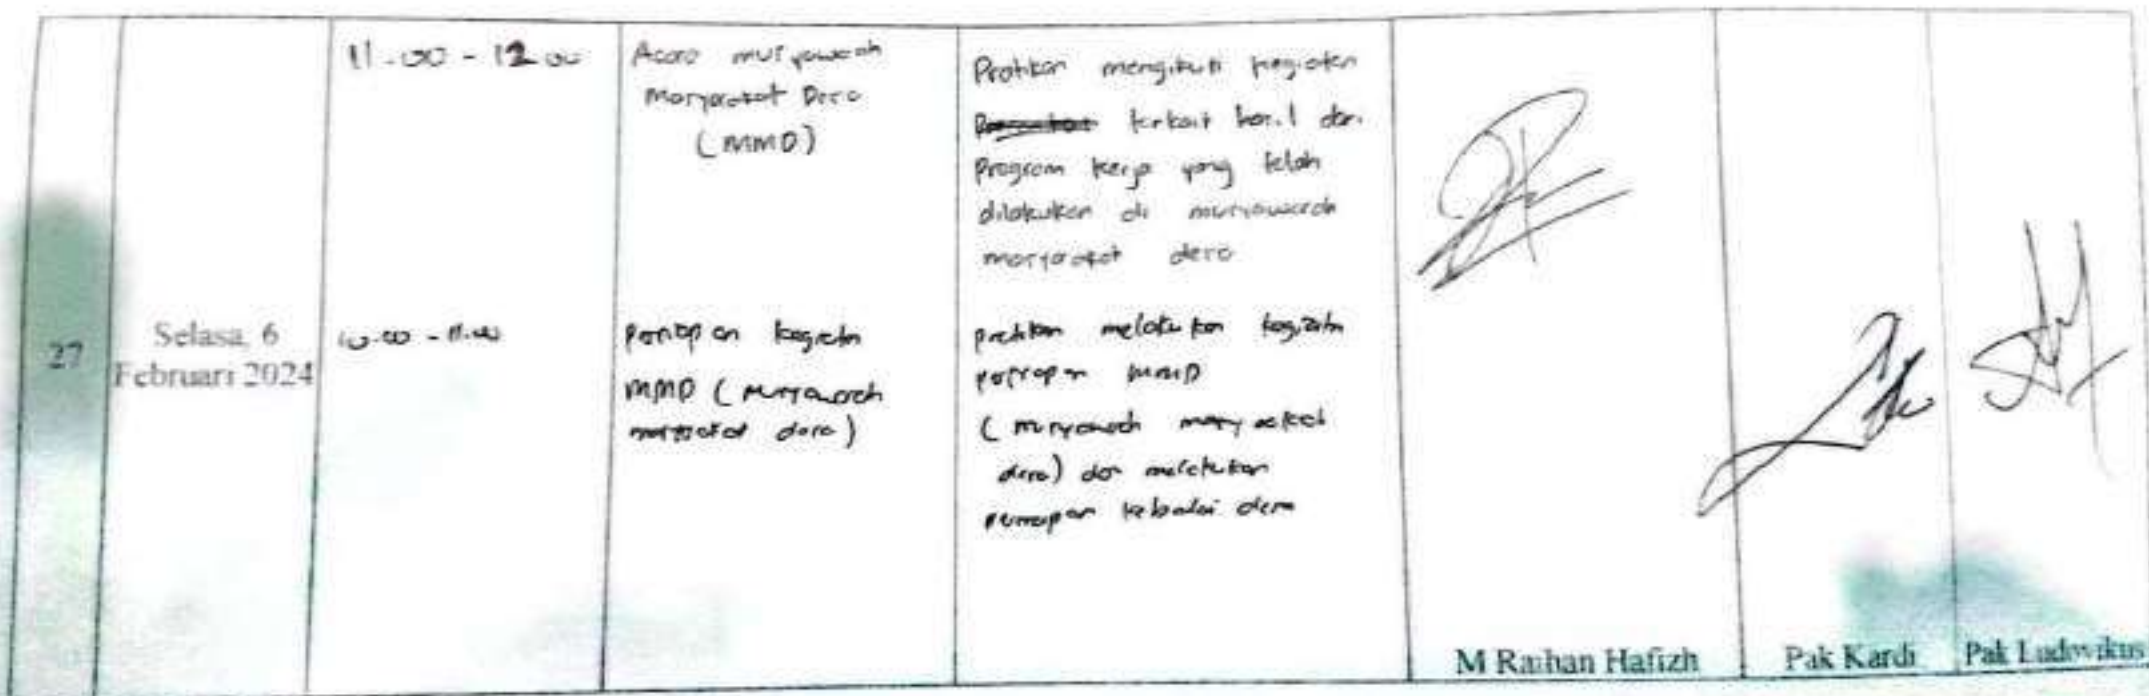 11.00 - 12.00
Acara musyawarah
Masyarakat Desa
(MMD)
Praktikan mengikuti kegiatan
terkait hasil dari
Program kerja yang telah
dilakukan di musyawarah
masyarakat desa
27
Selasa, 6
Februari 2024
10.00 - 11.00
Persiapan kegiatan
MMD (Musyawarah
masyarakat desa)
praktikan melakukan kegiatan
persiapan MMD
(musyawarah masyarakat
desa) dan melakukan
persiapan kebalai desa
M Raihan Hafizh
Pak Kardi
Pak Ludwikus